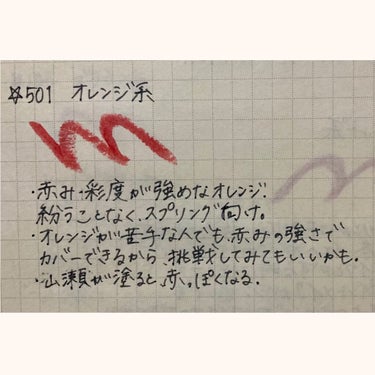 ☆501 オレンジ系
・赤み・彩度が強めなオレンジ!
紛うことなく、スプリング向け。
・オレンジが苦手な人でも、赤みの強さで
カバーできるから、挑戦してみてもいいかも。
・山瀬が塗ると、赤っぽくなる。